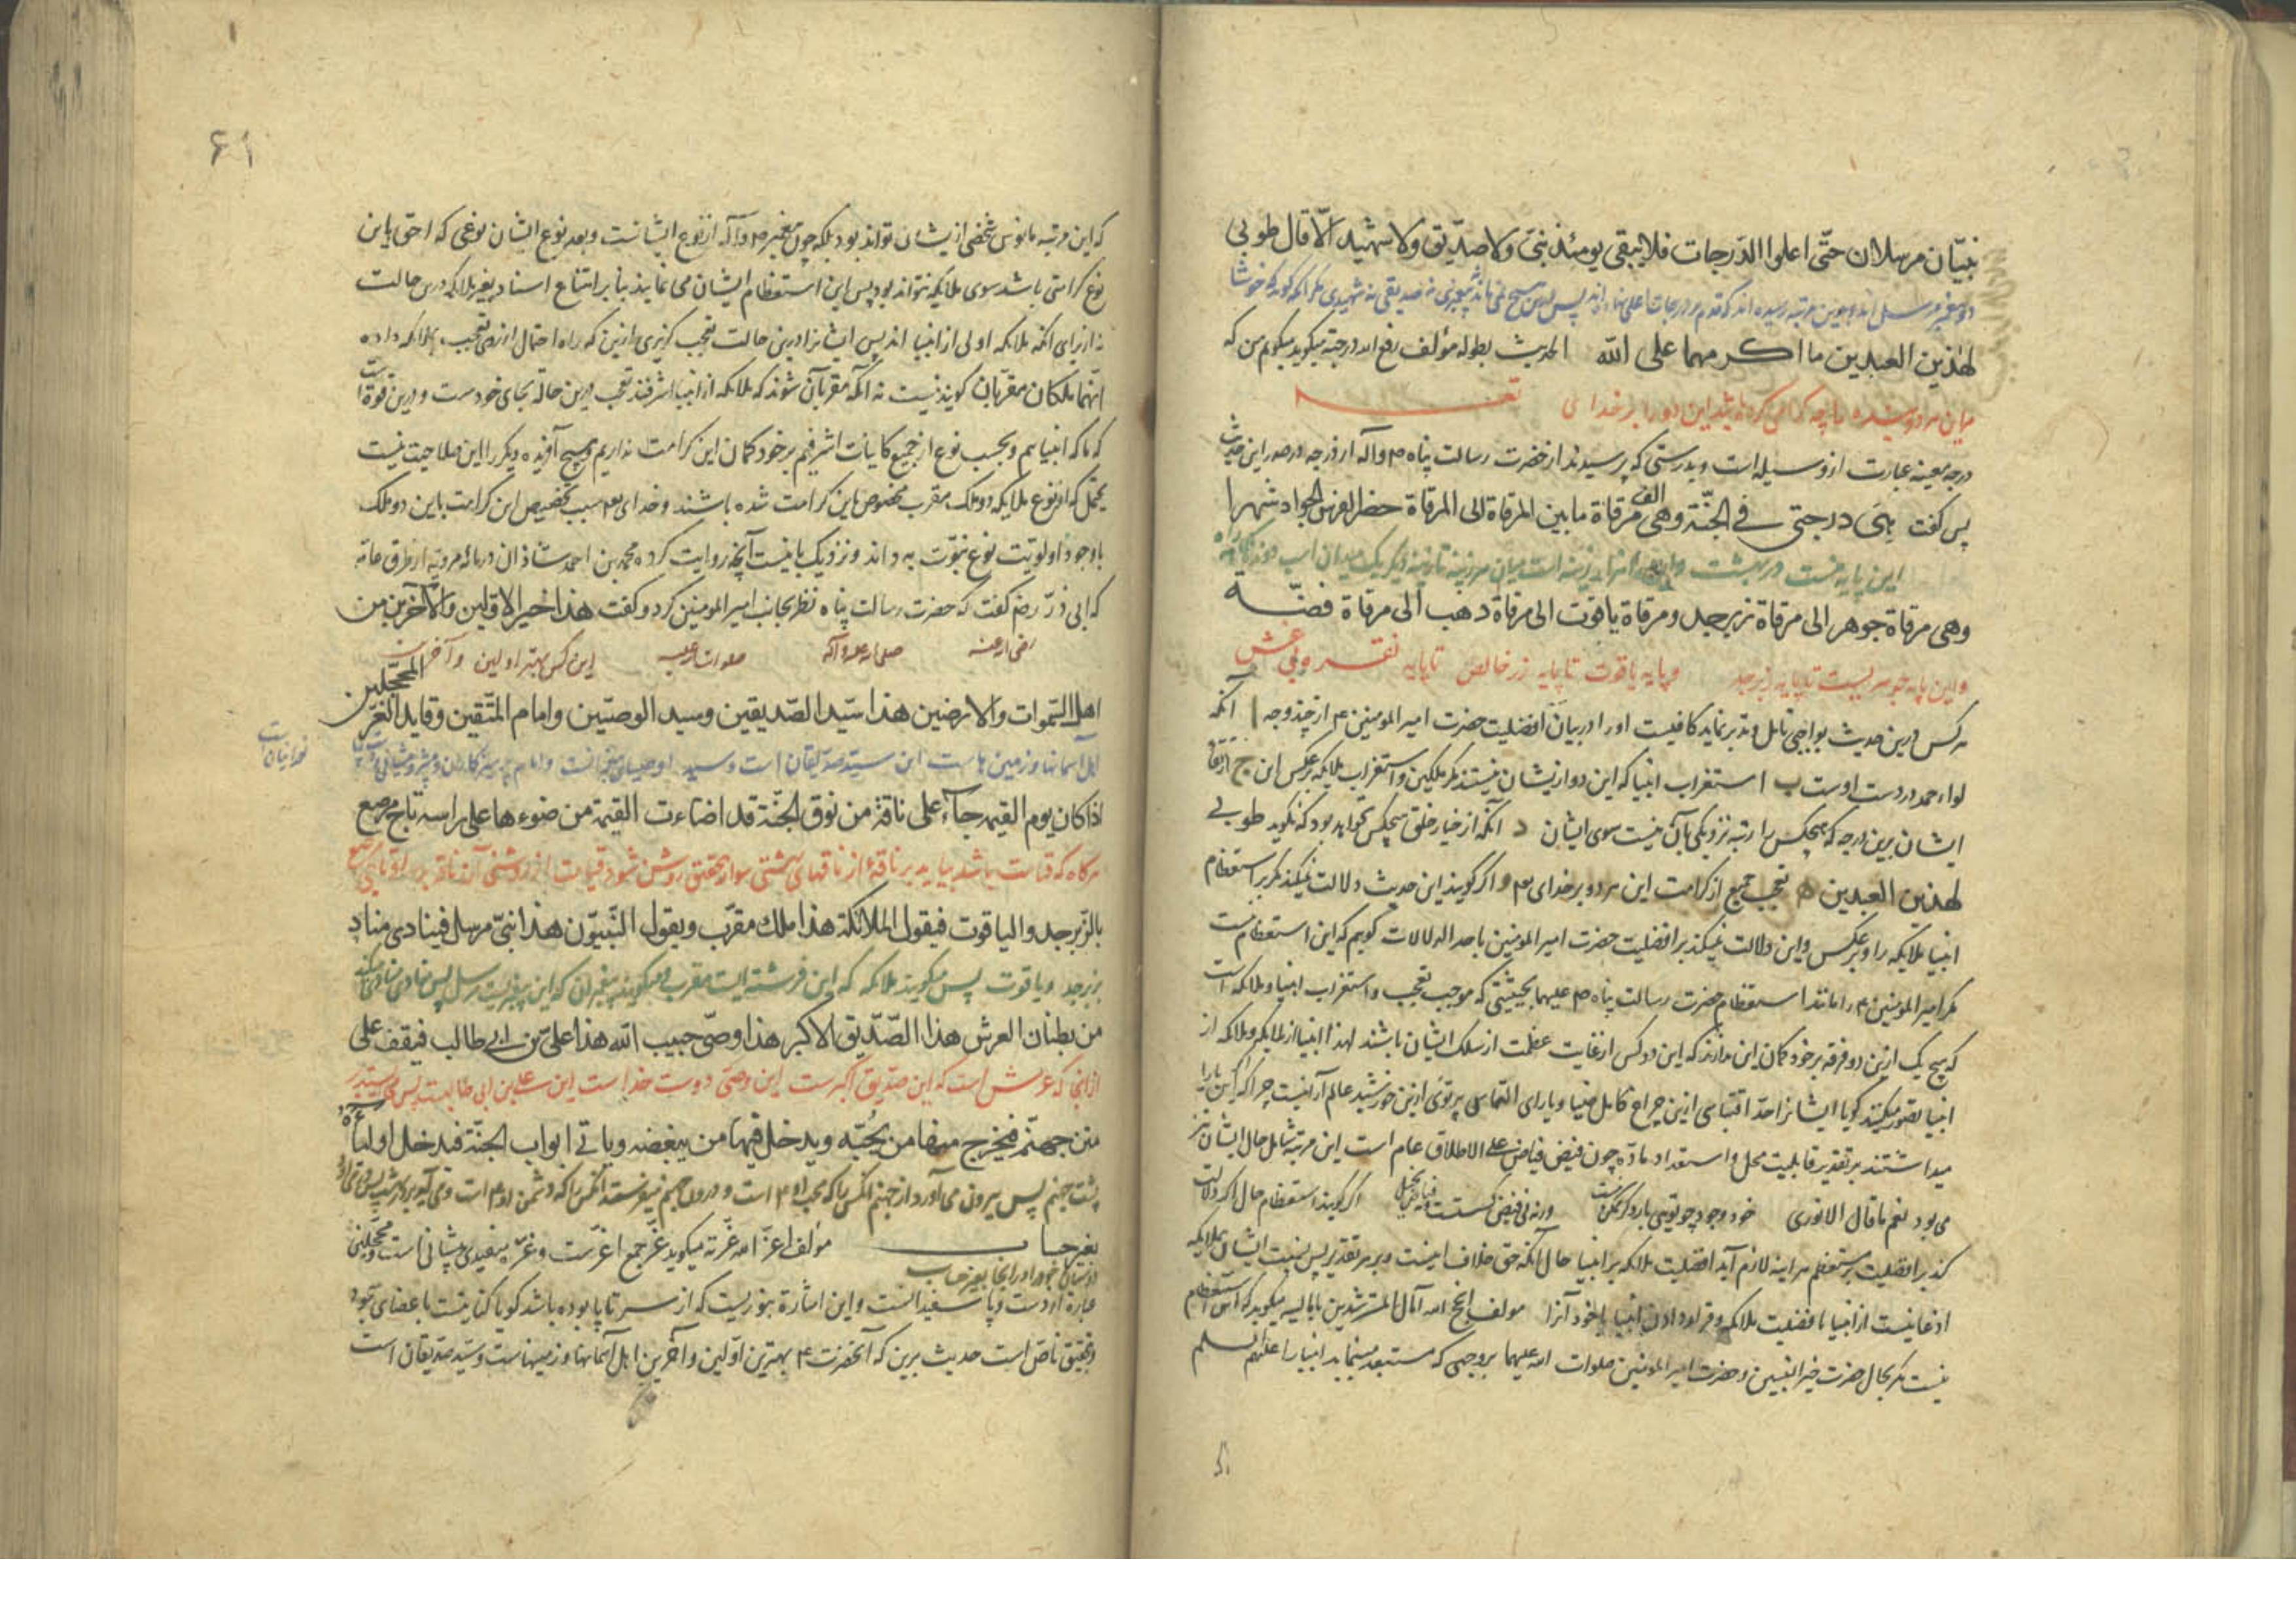 نبیّان مرسلان حتّی اعلوا الدّرجات فلا یبقی یومئذ نبیّ ولا صدّیق ولا شهید الّا قال طوبی
لهذین العبدین ما اکرمهما علی الله الحدیث بطوله مؤلف رفع الله درجته میکوید میکویم من که
میان هر دو بنده را چه کرامی کرده باشد این دو را بر خدای تعـ
درجه معینه عبارت از وسیله است و بدرستی که پرسیدند از حضرت رسالت پناه ص وآله از درجه در صدر این حدیث
پس کفت هی درجتی فی الجنّة وهی الف مرقاة ما بین المرقاة الی المرقاة حضر الفرس الجواد شهرا
وهی مرقاة جوهر الی مرقاة زبرجد ومرقاة یاقوت الی مرقاة ذهب الی مرقاة فضّه
و این پایه جوهریست تا پایه زبرجد و پایه یاقوت تا پایه زر خالص تا پایه نقره
هر کس درین حدیث بواجبی تامل و تدبر نماید کافیست او را در بیان افضلیت حضرت امیر المؤمنین ع از چند وجه ا آنکه
لواء حمد در دست اوست ب استغراب انبیا که این دو از یشان نیستند مکر ملکین و استغراب ملایکه بر عکس این ج ارتقا
ایشان برین درجه که هیچکس را رتبه نزدیکی بآن نیست سوی ایشان د آنکه از خیار خلق هیچکس نخواهد بود که نکوید طوبی
لهذین العبدین ه تعجب جمیع از کرامت این هر دو بر خدای تع و اکر کویند این حدیث دلالت نمیکند مکر بر استعظام
انبیا ملایکه را و بر عکس و این دلالت نمیکند بر افضلیت حضرت امیر المؤمنین باحد الدلالات کویم که این استعظام نیست
مکر امیر المؤمنین ع را مانند استعظام حضرت رسالت پناه ص علیهما بحیثیتی که موجب تعجب و استغراب انبیا و ملائکه است
که هیچ یک ازین دو فرقه بر خود کمان این ندارند که این دو کس از غایت عظمت از سلک ایشان باشند لهذا انبیا از ملایکه و ملائکه از
انبیا تصور میکنند کویا ایشانرا حدّ اقتباسی ازین چراغ کامل ضیا و یارای التماس پرتوی ازین خورشید عالم آرا نیست چرا که
میداشتند بر تقدیر قابلیت محل و استعداد ماده چون فیض فیاض علی الاطلاق عام است این مرتبه شامل حال ایشان نیز
می بود نعم ما قال الانوری خود وجود چو تویی بار دکر ممکن نیست ورنه نی فیض کسست و نه فیاض بخیل اکر کویند استعظام حال اکر دلالت
کند بر افضلیت مستعظم هر اینه لازم آید افضلیت ملائکه بر انبیا حال آنکه حق خلاف اینست و بر هر تقدیر پس نسبت ایشان بملایکه
اذعانیست از انبیا بافضلیت ملائکه و قرار دادن انبیا با خود آنرا مولف انجح الله آمال المسترشدین باماله میکوید که این استعظام
نیست مکر بحال حضرت خیر النبیین و حضرت امیر المؤمنین صلوات الله علیهما بر وجهی که مستبعد مینماید انبیا را علیهم السلم
۶۱
که این مرتبه مانوس شخصی از یشان تواند بود بلکه چون پیغمبر ص وآله از نوع ایشانست و بعد نوع ایشان نوعی که احق باین
نوع کرامتی باشد سوی ملایکه نتواند بود پس این استعظام ایشان می نمایند بنابر امتناع اسناد بغیر ملائکه درین حالت
نه از برای انکه ملائکه اولی از انبیا اند پس ایشانرا درین حالت تعجب کزیری ازین که راه احتمال از روی تعجب بملائکه داده
انّهما ملکان مقرّبان کویند نیست نه آنکه مقر بآن شوند که ملائکه از انبیا اشرفند تعجب درین حاله بجای خود ست و درین قوة است
که ما که انبیاییم و بحسب نوع از جمیع کاینات اشرفیم بر خود کمان این کرامت نداریم و هیچ آفریده دیکر را این صلاحیت نیست
یحتمل که از نوع ملایکه دو ملک مقرب مخصوص باین کرامت شده باشند و خدای تع سبب تخصیص این کرامت باین دو ملک
با وجود اولویت نوع نبوّت به داند و نزدیک باینست آنچه روایت کرده محمد بن احمد شاذان در مائه مرویه از طرق عامه
که ابی ذرّ رض کفت که حضرت رسالت پناه نظر بجانب امیر المؤمنین کرد و کفت هذا خیر الاولین والآخرین من
رضی الله عنه صلی الله علیه وآله صلوات الله علیه این کس بهتر اولین و آخرین
اهل السّموات والارضین هذا سیّد الصّدیقین وسید الوصیّین وامام المتّقین وقاید الغرّ المحجّلین
اهل آسمانها و زمین هاست این سیّد صدیقان است و سید اوصیای پیغمبرانست و امام پرهیزکاران و
اذا کان یوم القیمة جآء علی ناقة من نوق الجنّة قد اضاءت القیمة من ضوءها علی راسه تاج مرصع
هر کاه که قیامت باشد بیاید بر ناقهٔ از ناقهای بهشتی سوار بتحقیق روشن شود قیامت از روشنی آن ناقه بر سر او تاجی مرصع
بالزبرجد والیاقوت فیقول الملائکة هذا ملك مقرّب ویقول النّبیّون هذا نبیّ مرسل فینادی مناد
بزبرجد و یاقوت پس میکویند ملائکه که این فرشته ایست مقرب و میکویند پیغمبران که این پیغمبریست مرسل پس
من بطنان العرش هذا الصّدّیق الاکبر هذا وصیّ حبیب الله هذا علیّ بن ابی طالب فیقف علی
از انجا که عرش است که این صدیق اکبرست این وصی دوست خداست این علی بن ابی طالبست پس می ایستد بر
متن جهنّم فیخرج منها من یحبّه ویدخل فیها من یبغضه ویاتی ابواب الجنّة فیدخل اولیاءه
پشت جهنم پس بیرون می آورد از جهنم انکس را که محب او ع است و درون جهنم میفرستد انکس را که دشمن او ع است
بغیر حساب مولف اعزّ الله غرّته میکوید غرّ جمع اغرّست و غرّه سفیدی پیشانی است و محجلین
دوستان خود را در انجا بغیر حساب
عبارة از دست و پا سفیدانست و این اشارة بنوریست که از سر تا پا بوده باشد کویا کنایتست باعضای
و بتحقیق ناصّ است حدیث برین که آنحضرت ع بهترین اوّلین و آخرین اهل آسمانها و زمینهاست و سیّد صدیقان است